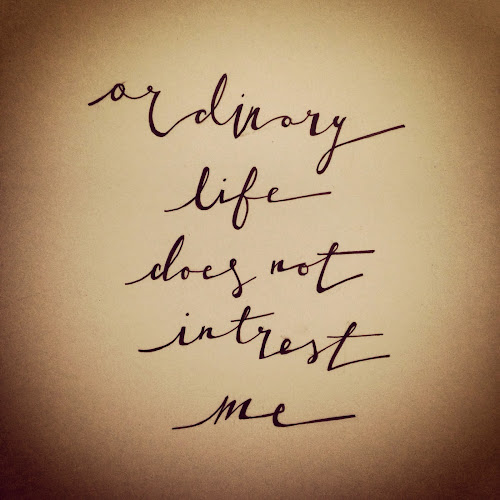 ordinary
life
does not
intrest
me